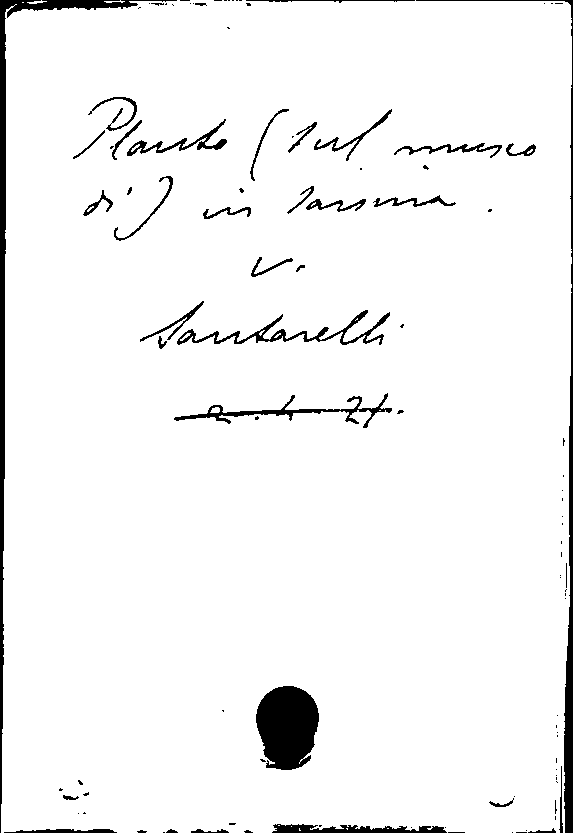 Plauto (sul museo
di) in Sarsina.
v.
Santarelli